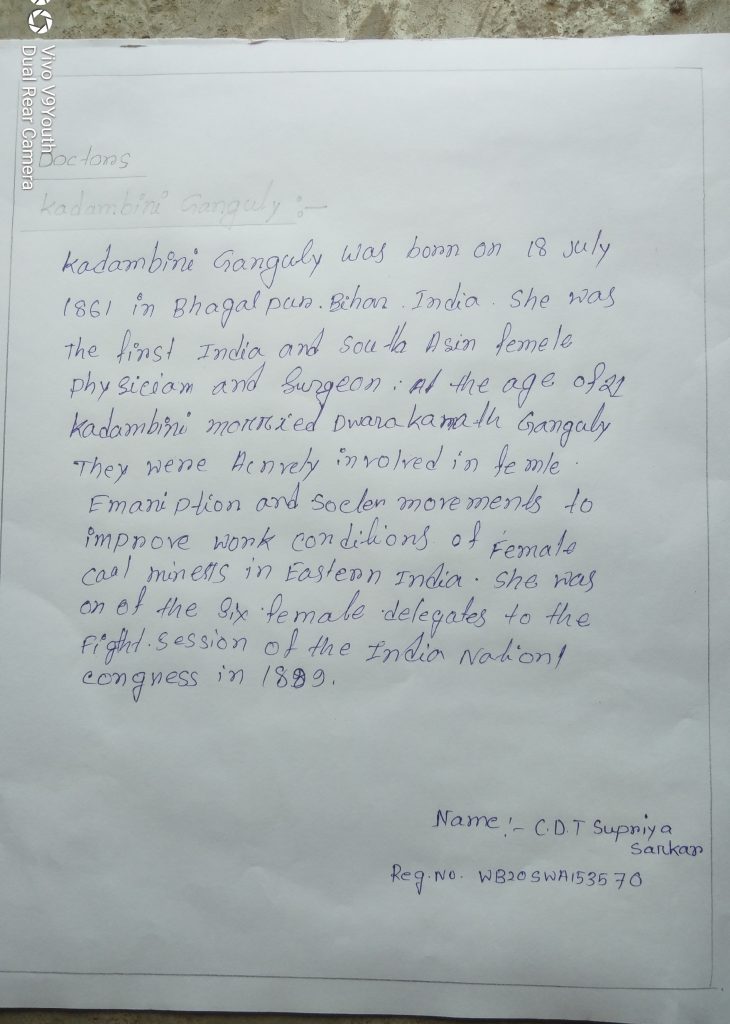 Vivo V9Youth
Dual Rear Camera
Doctors
Kadambini Ganguly :-
Kadambini Ganguly was born on 18 July
1861 in Bhagalpur. Bihar. India. She was
The first India and South Asin femele
Physiciam and Surgeon. At the age of 21
Kadambini morrried Dwarakanath Ganguly
They were Acnvely involved in femle.
Emaniption and Socler movements to
improve work conditions of Female
Coal miners in Eastern India. She was
on of the Six female delegates to the
Fight.session of the India Nationl
congress in 1889.
Name :- C.D.T Supriya
Sarkar
Reg.No. WB20SWA153570